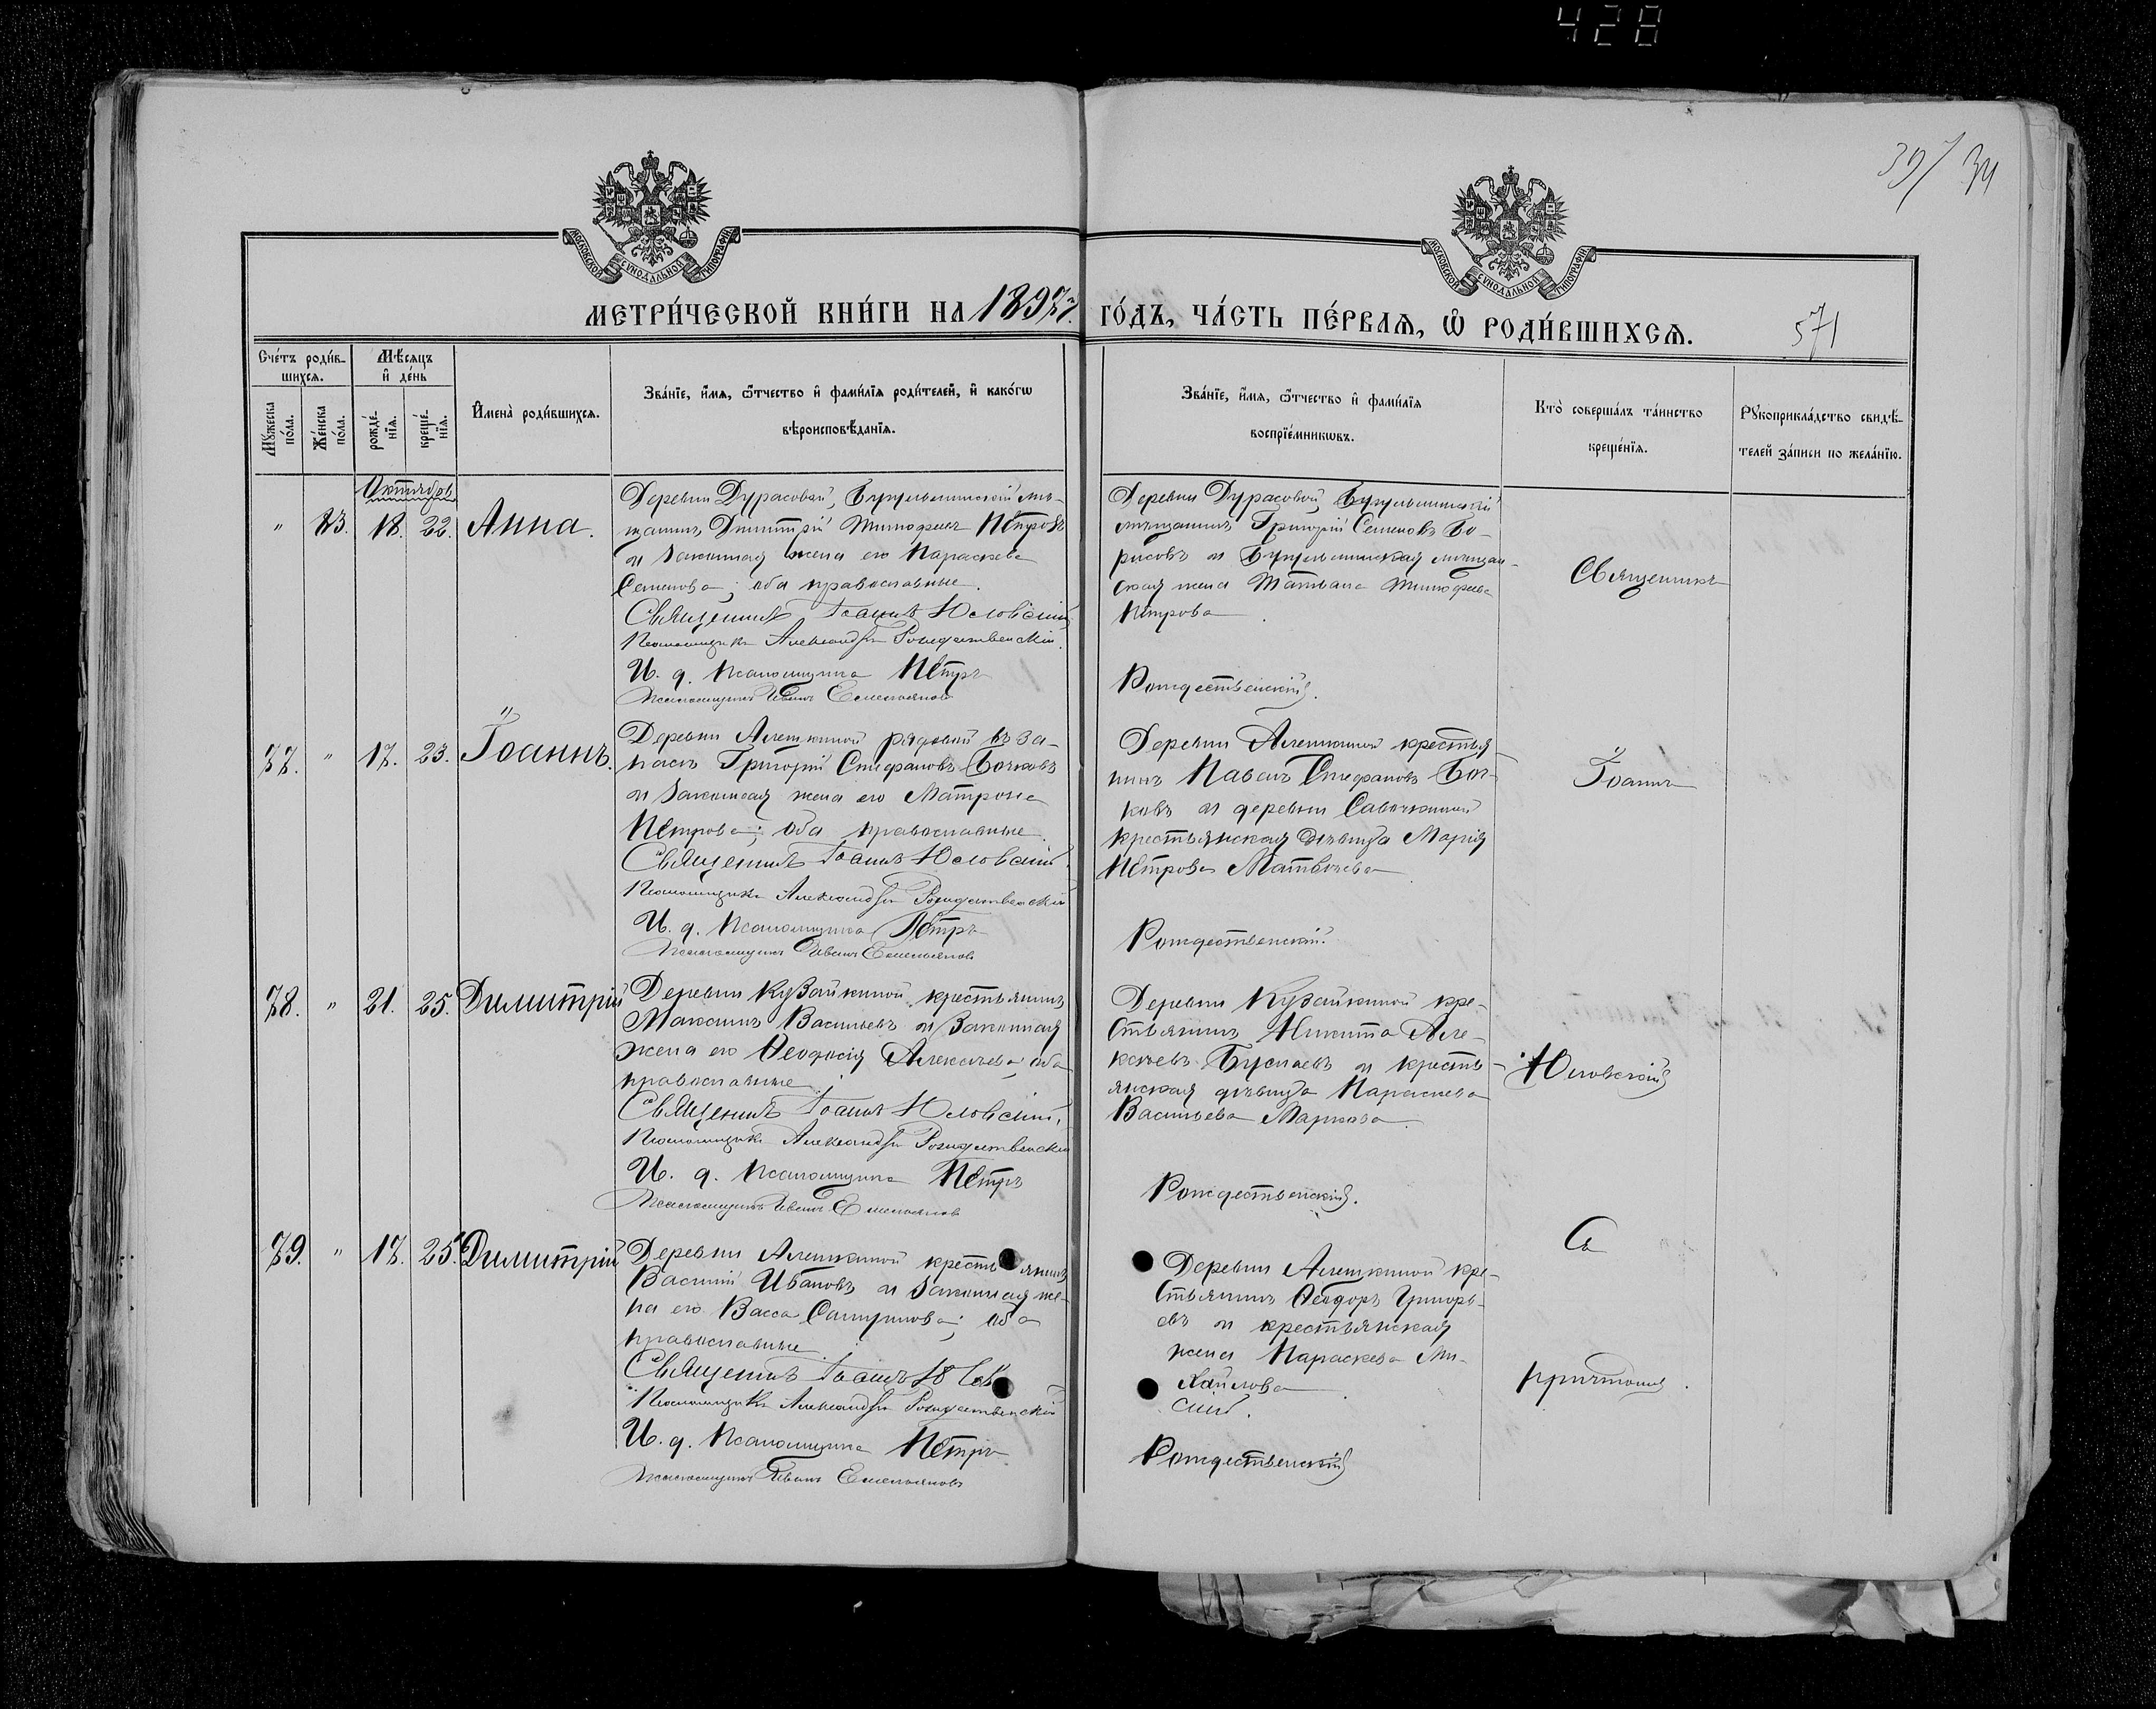 428
39/ 34
МОСКОВСКОЙ СѴНОДАЛЬНОЙ ТИПОГРАФІИ
МОСКОВСКОЙ СѴНОДАЛЬНОЙ ТИПОГРАФІИ
МЕТРИ́ЧЕСКОЙ КНИ́ГИ НА 1897й ГО́ДЪ, ЧА́СТЬ ПЕ́РВАѦ, Ѡ РОДИ́ВШИХСѦ.
571
Сче́тъ роди́в-
шихсѧ.
Мꙋ́жеска по́ла.
Же́нска по́ла.
Мѣ́сѧцъ и де́нь
рожде́-нїѧ.
креще́-нїѧ.
И́мена̀ роди́вшихсѧ.
Зва́нїе, и́мѧ, ѻ́тчество и фами́лїѧ роди́телей, и како́гѡ
вѣроисповѣ́данїѧ.
Зва́нїе, и́мѧ, ѻ́тчество и фами́лїѧ
воспрїе́мникѡвъ.
Кто̀ соверша́лъ та́инство
креще́нїѧ.
Рꙋкоприкла́дство свидѣ́-
телей за́писи по жела́нїю.
Октябрь
" 83. 18. 22. Анна.
Деревни Дурасовой, Бугульминскій мѣ-
щанинъ Димитрій Тимофеевъ Петровъ
и законная жена его Параскева
Семенова; оба православные.
Священникъ Іоаннъ Юловскій
Псаломщикъ Александръ Рождественскій.
И. д. псаломщика Петръ
Псаломщикъ Иванъ Емельяновъ
Деревни Дурасовой, Бугульминскій
мѣщанинъ Григорій Семеновъ Бо-
рисовъ и Бугульминская мѣщан-
ская жена Татьяна Тимофеева
Петрова.
Рождественскій.
Священникъ
77. " 17. 23. Іоаннъ.
Деревни Алешкиной рядовой въ за-
пасѣ Григорій Стефановъ Бочковъ
и законная жена его Матрона
Петрова; оба православные.
Священникъ Іоаннъ Юловскій.
Псаломщикъ Александръ Рождественскій
И. д. псаломщика Петръ
Псаломщикъ Иванъ Емельяновъ
Деревни Алешкиной крестья-
нинъ Павелъ Стефановъ Боч-
ковъ и деревни Савочкиной
крестьянская дѣвица Марія
Петрова Матвѣева.
Рождественскій.
Іоаннъ
78. " 21. 25. Димитрій
Деревни Кузайкиной крестьянинъ
Максимъ Васильевъ и законная
жена его Ѳеодосія Алексѣева; оба
православные.
Священникъ Іоаннъ Юловскій.
Псаломщикъ Александръ Рождественскій
И. д. псаломщика Петръ
Псаломщикъ Иванъ Емельяновъ
Деревни Кузайкиной кре-
стьянинъ Никита Але-
ксѣевъ и кресть-
янская дѣвица Параскева
Васильева Маркова.
Рождественскій.
Юловскій
79. " 17. 25. Димитрій
Деревни Алешкиной крестьянинъ
Василій Ивановъ и законная же-
на его Васса ; оба
православные.
Священникъ Іоаннъ Юлов
Псаломщикъ Александръ Рождественскій
И. д. псаломщика Петръ
Псаломщикъ Иванъ Емельяновъ
Деревни Алешкиной кре-
стьянинъ Ѳеодоръ Григорь-
евъ и крестьянская
жена Параскева Ми-
хайлова.
скій.
Рождественскій
Съ
причтомъ.